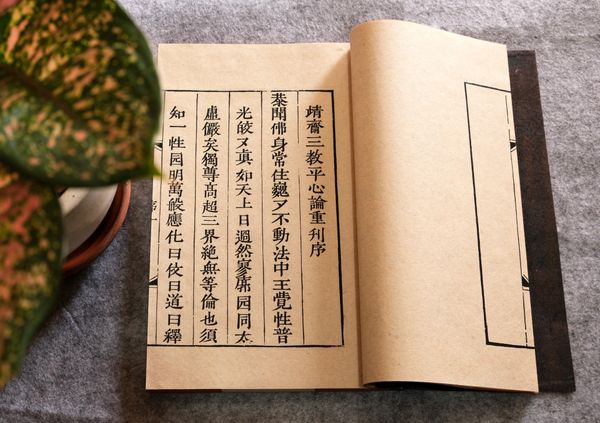 靖齋三教平心論重刋序
恭聞佛身常住巍〻不動法中王覺性普
光皎〻眞如天上日逈然寥廓园同太
虛儼矣獨尊髙超三界絶無等倫也須
知一性园明萬般應化曰伩曰道曰釋